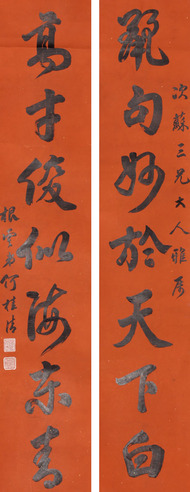 麗句妙於天下白
次蘇三兄大人雅屬
高才俊似海東青
根雲弟何桂清